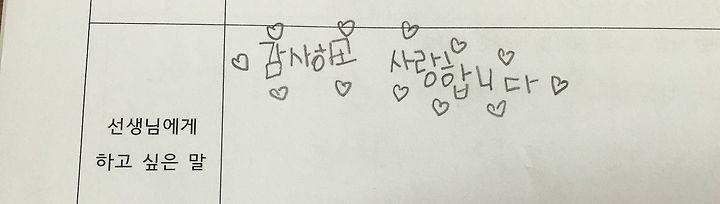 감사하고 사랑합니다
선생님에게
하고 싶은 말